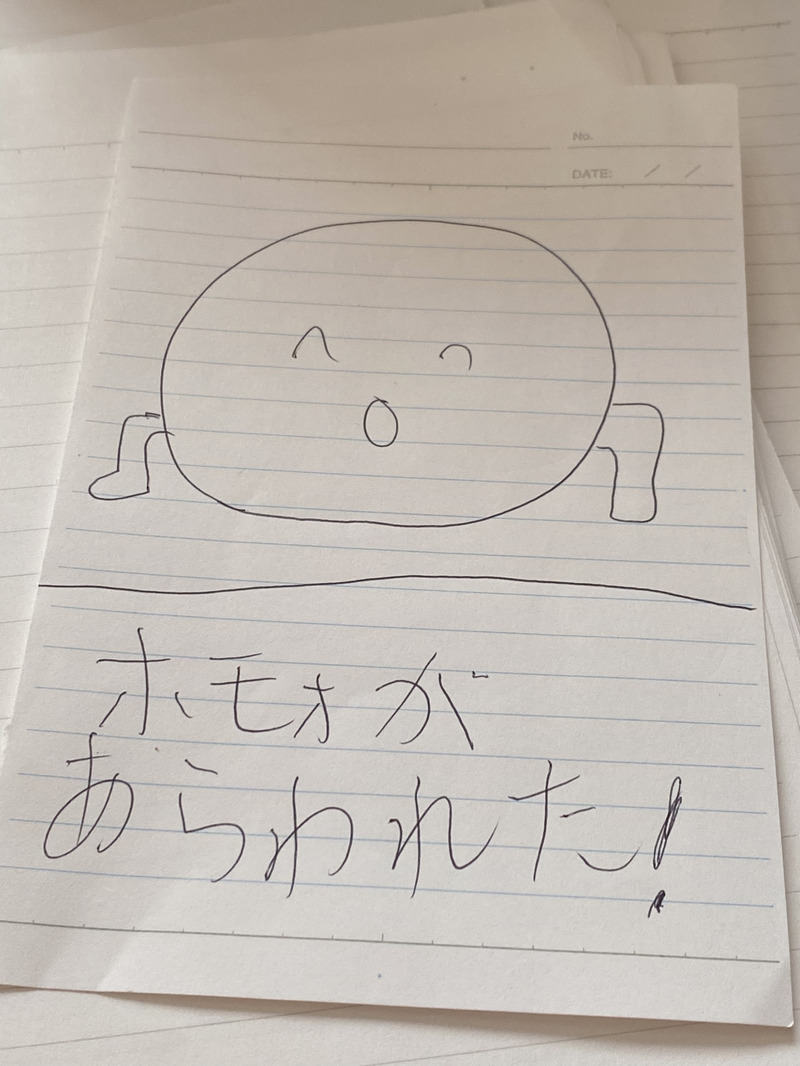 No.
DATE: / /
ホモォが
あらわれた!